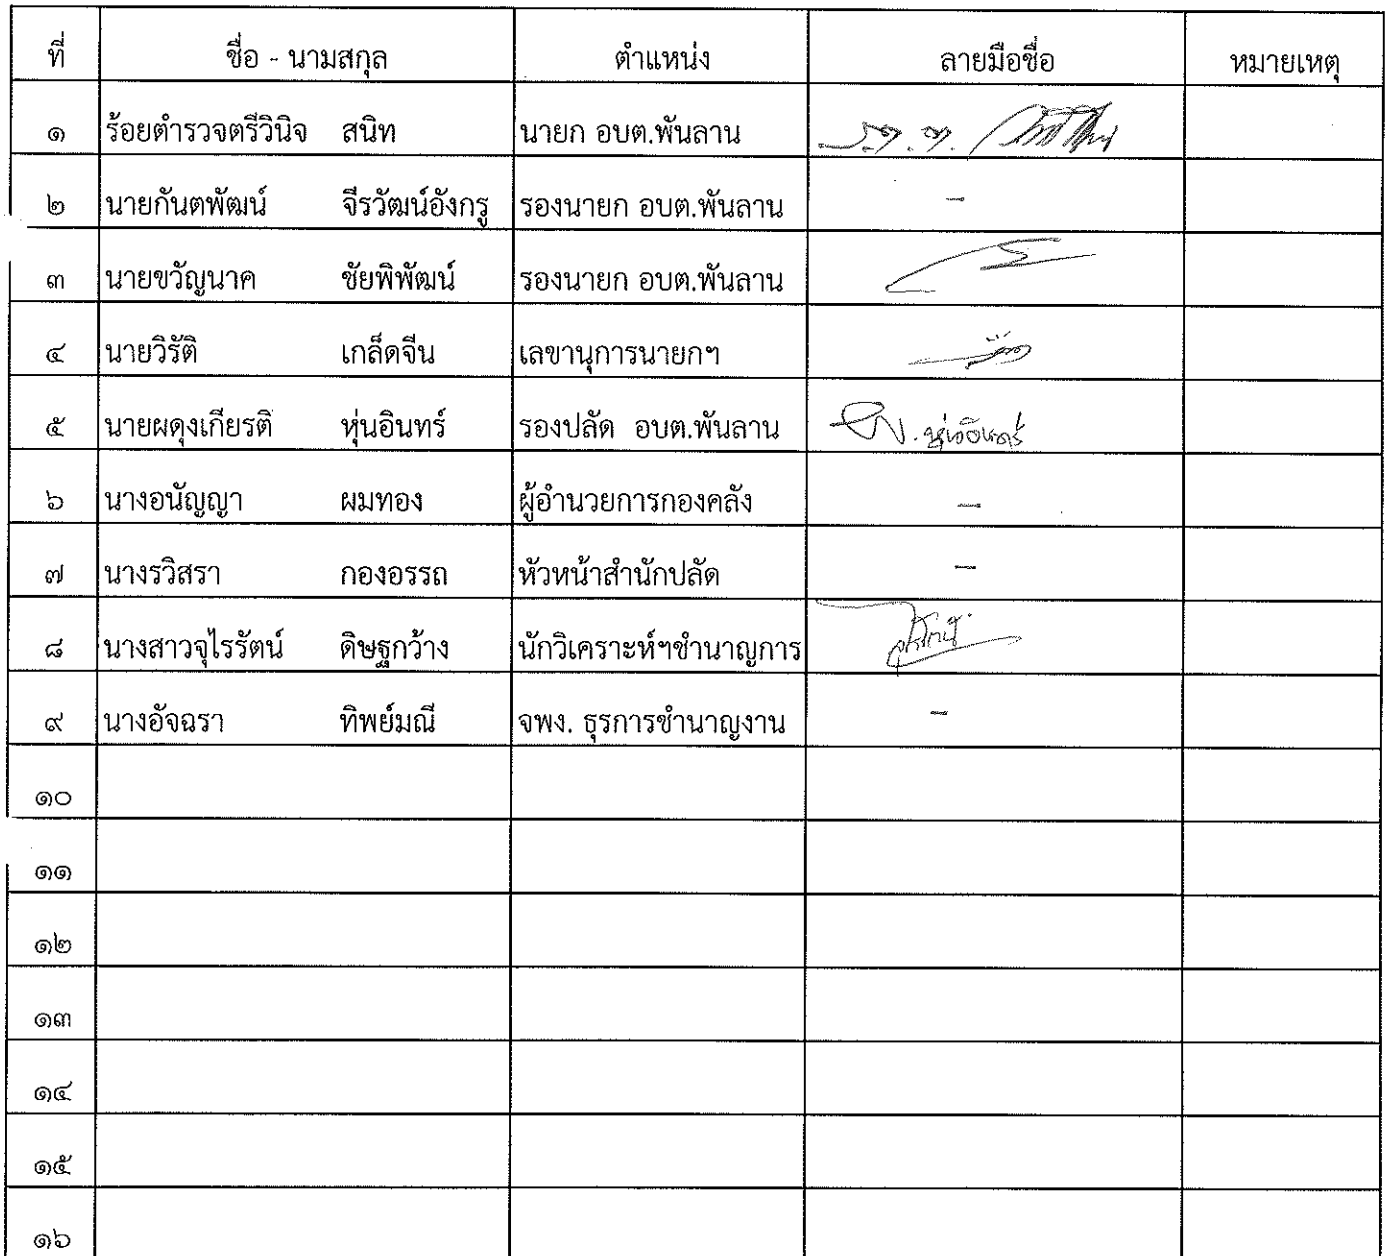 ที่ ชื่อ - นามสกุล ตำแหน่ง ลายมือชื่อ หมายเหตุ
๑ ร้อยตำรวจตรีวินิจ สนิท นายก อบต.พันลาน ร.ต.ต.
๒ นายกันตพัฒน์ จีรวัฒน์อังกรู รองนายก อบต.พันลาน -
๓ นายขวัญนาค ชัยพิพัฒน์ รองนายก อบต.พันลาน
๔ นายวิรัติ เกล็ดจีน เลขานุการนายกฯ
๕ นายผดุงเกียรติ หุ่นอินทร์ รองปลัด อบต.พันลาน หุ่นอินทร์
๖ นางอนัญญา ผมทอง ผู้อำนวยการกองคลัง -
๗ นางรวิสรา กองอรรถ หัวหน้าสำนักปลัด -
๘ นางสาวจุไรรัตน์ ดิษฐกว้าง นักวิเคราะห์ฯชำนาญการ
๙ นางอัจฉรา ทิพย์มณี จพง. ธุรการชำนาญงาน -
๑๐
๑๑
๑๒
๑๓
๑๔
๑๕
๑๖